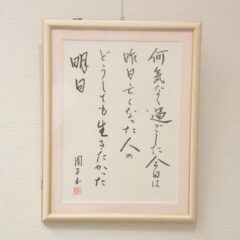 何気なく過ごした今日は
昨日亡くなった人の
どうしても生きたかった
明日